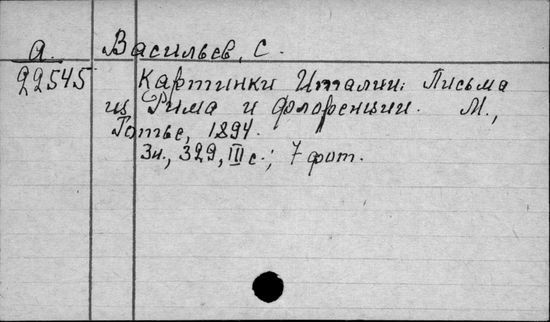 А. Васильев, С.
22545 Картинки Италии. Письма
из Рима и Флоренции. М.,
Готье, 1894.
3н., 329, III с.; 7 фот.